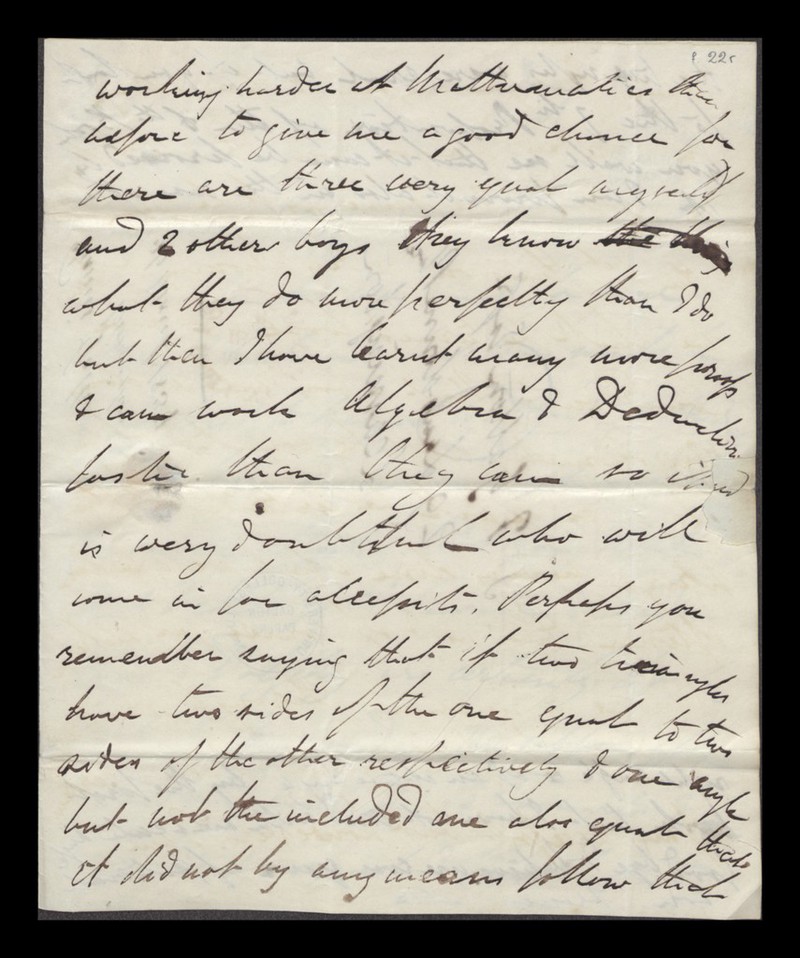 22r
working harder at Mathematics than
before to give me a good chance for
there are three very equal myself
and 2 other boys they know the thing
what they do more perfectly than I do
but then I have learnt many more props
& can work Algebra & Deductions
faster than they can so it
is very doubtful who will
come in for accessits. Perhaps you
remember saying that if two triangles
have two sides of the one equal to two
sides of the other respectively & one angle
but not the included one also equal that
it did not by any means follow that